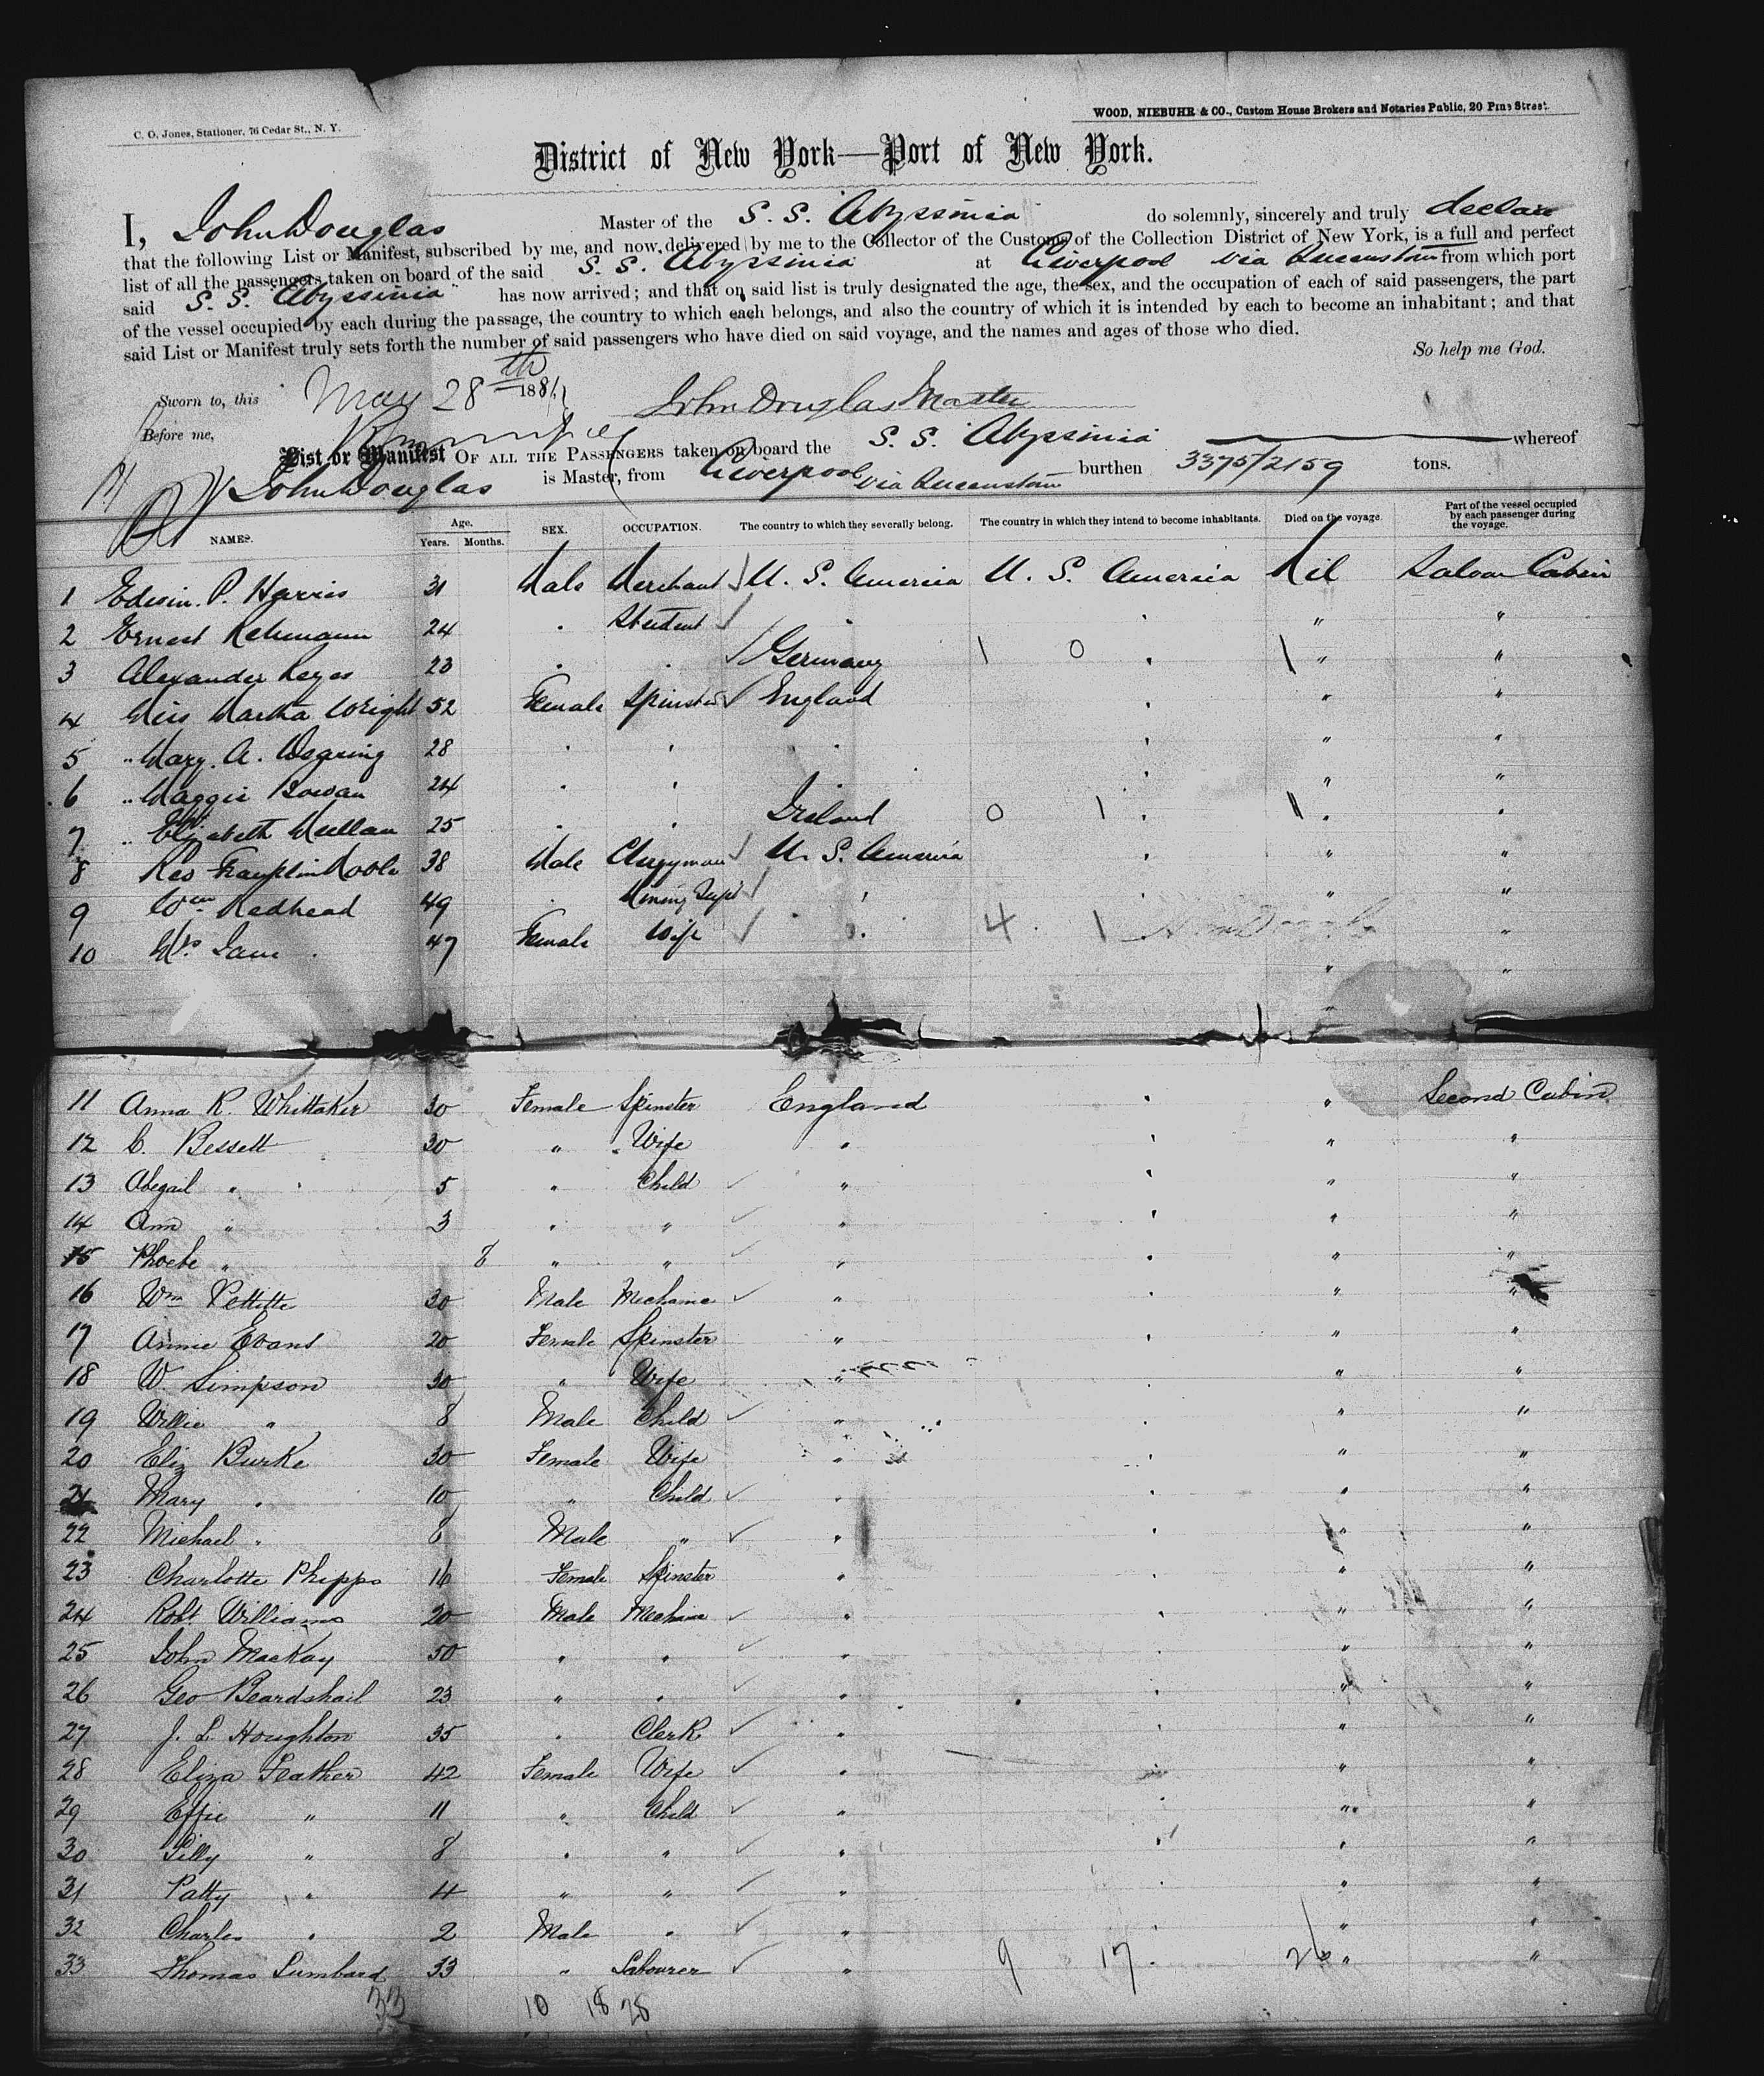 C. O. Jones, Stationer, 76 Cedar St., N. Y.
WOOD, NIEBUHR & CO., Custom House Brokers and Notaries Public, 20 Pine Street.
District of New York—Port of New York.
I, John Douglas Master of the S. S. Abyssinia do solemnly, sincerely and truly declare
that the following List or Manifest, subscribed by me, and now delivered by me to the Collector of the Customs of the Collection District of New York, is a full and perfect
list of all the passengers taken on board of the said S. S. Abyssinia at Liverpool via Queenstown from which port
said S. S. "Abyssinia" has now arrived; and that on said list is truly designated the age, the sex, and the occupation of each of said passengers, the part
of the vessel occupied by each during the passage, the country to which each belongs, and also the country of which it is intended by each to become an inhabitant; and that
said List or Manifest truly sets forth the number of said passengers who have died on said voyage, and the names and ages of those who died.
So help me God.
Sworn to, this May 28th 188
John Douglas Master
Before me,
List or Manifest OF ALL THE PASSENGERS taken on board the S. S. Abyssinia whereof
John Douglas is Master, from Liverpool via Queenstown burthen 3375/2159 tons.
NAMES. Age. Years. Months. SEX. OCCUPATION. The country to which they severally belong. The country in which they intend to become inhabitants. Died on the voyage. Part of the vessel occupied by each passenger during the voyage.
1 Edwin. P. Harris 31 Male Merchant U. S. America U. S. America Nil Saloon Cabin
2 Ernest 24 " Student " " "
3 Alexander 23 " " Germany 1 0 " 1 " "
4 Miss Martha Wright 52 Female Spinster England " " "
5 " Mary. A. Wearing 28 " " " " " "
6 " Maggie 24 " " " " "
7 " Elizabeth Mullan 25 " " Ireland 0 1 " 1 " "
8 Rev Franklin Noble 38 Male Clergyman U. S. America " " "
9 Wm Redhead 49 " Mining Supt " " " "
10 Mrs Jane 47 Female Wife " 4 1 "
11 Anna R. Whittaker 30 Female Spinster England " " Second Cabin
12 C. Bessett 30 " Wife " " " "
13 Abegail " 5 " Child " " " "
14 Ann " 3 " " " " " "
15 Phoebe " 8 " " " " " "
16 Wm Pettitte 30 Male Mechanic " " " "
17 Annie Evans 20 Female Spinster " " " "
18 W. Simpson 30 " Wife " " " "
19 Willie " 8 Male Child " " " "
20 Eliz Burke 30 Female Wife " " " "
21 Mary " 10 " Child " " " "
22 Michael " 8 Male " " " " "
23 Charlotte Phipps 16 Female Spinster " " " "
24 Robt Williams 20 Male Mechanic " " " "
25 John MacKay 50 " " " " " "
26 Geo Beardshail 23 " " " " " "
27 J. L. Houghton 35 " Clerk " " " "
28 Eliza Feather 42 Female Wife " " " "
29 Effie " 11 " Child " " " "
30 Lilly " 8 " " " " " "
31 Patty " 4 " " " " " "
32 Charles " 2 Male " " " " "
33 Thomas Lumbard 33 " Labourer " 9 17 " 26 " "
33 10 18 28